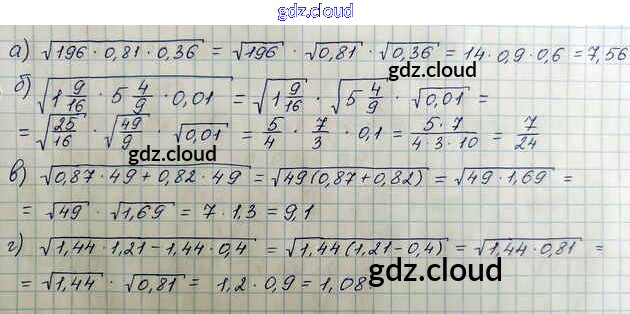 gdz.cloud
а) √196 · 0,81 · 0,36 = √196 · √0,81 · √0,36 = 14 · 0,9 · 0,6 = 7,56
gdz.cloud
б) √1 9/16 · 5 4/9 · 0,01 = √1 9/16 · √5 4/9 · √0,01 =
= √25/16 · √49/9 · √0,01 = 5/4 · 7/3 · 0,1 = 5·7/4·3·10 = 7/24
gdz.cloud
gdz.cloud
в) √0,87 · 49 + 0,82 · 49 = √49(0,87 + 0,82) = √49 · 1,69 =
= √49 · √1,69 = 7 · 1,3 = 9,1
г) √1,44 · 1,21 − 1,44 · 0,4 = √1,44(1,21 − 0,4) = √1,44 · 0,81 =
= √1,44 · √0,81 = 1,2 · 0,9 = 1,08
gdz.cloud